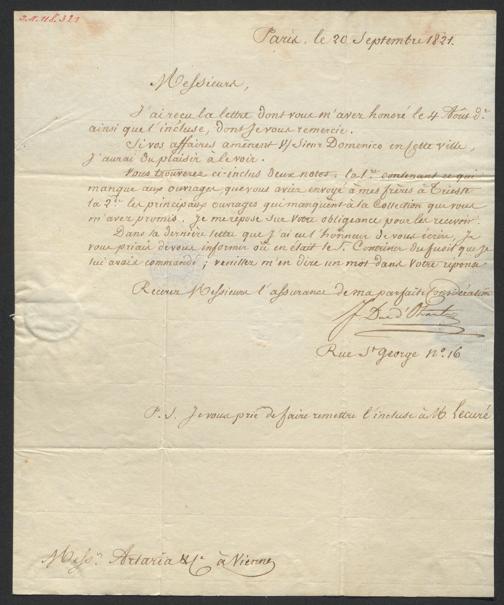 I.N. 115.321
Paris, le 20 Septembre 1821.
Messieurs,
J'ai reçu la lettre dont vous m'avez honoré le 4 Août dr.
ainsi que l'incluse, dont je vous remercie.
Si vos affaires amènent Sigr Domenico en cette ville,
j'aurai du plaisir à le voir.
Vous trouverez ci-inclus deux notes: la 1re contenant ce qui
manque aux ouvrages, que vous aviez envoyé à mes frères à Trieste
la 2e les principaux ouvrages qui manquent à la Collection que vous
m'avez promis. Je me repose sur votre obligeance pour les recevoir.
Dans la dernière lettre que j'ai eu l'honneur de vous écrire, Je
vous priais de vous informer où en était le Sr. Contriner du fusil que je
lui avais commandé; veuillez m'en dire un mot dans votre réponse
Recevez Messieurs l'assurance de ma parfaite Considération
Rue St George No. 16
P. S. Je vous prie de faire remettre l'incluse à M. Lecuré
Messrs. Artaria & Ce à Vienne